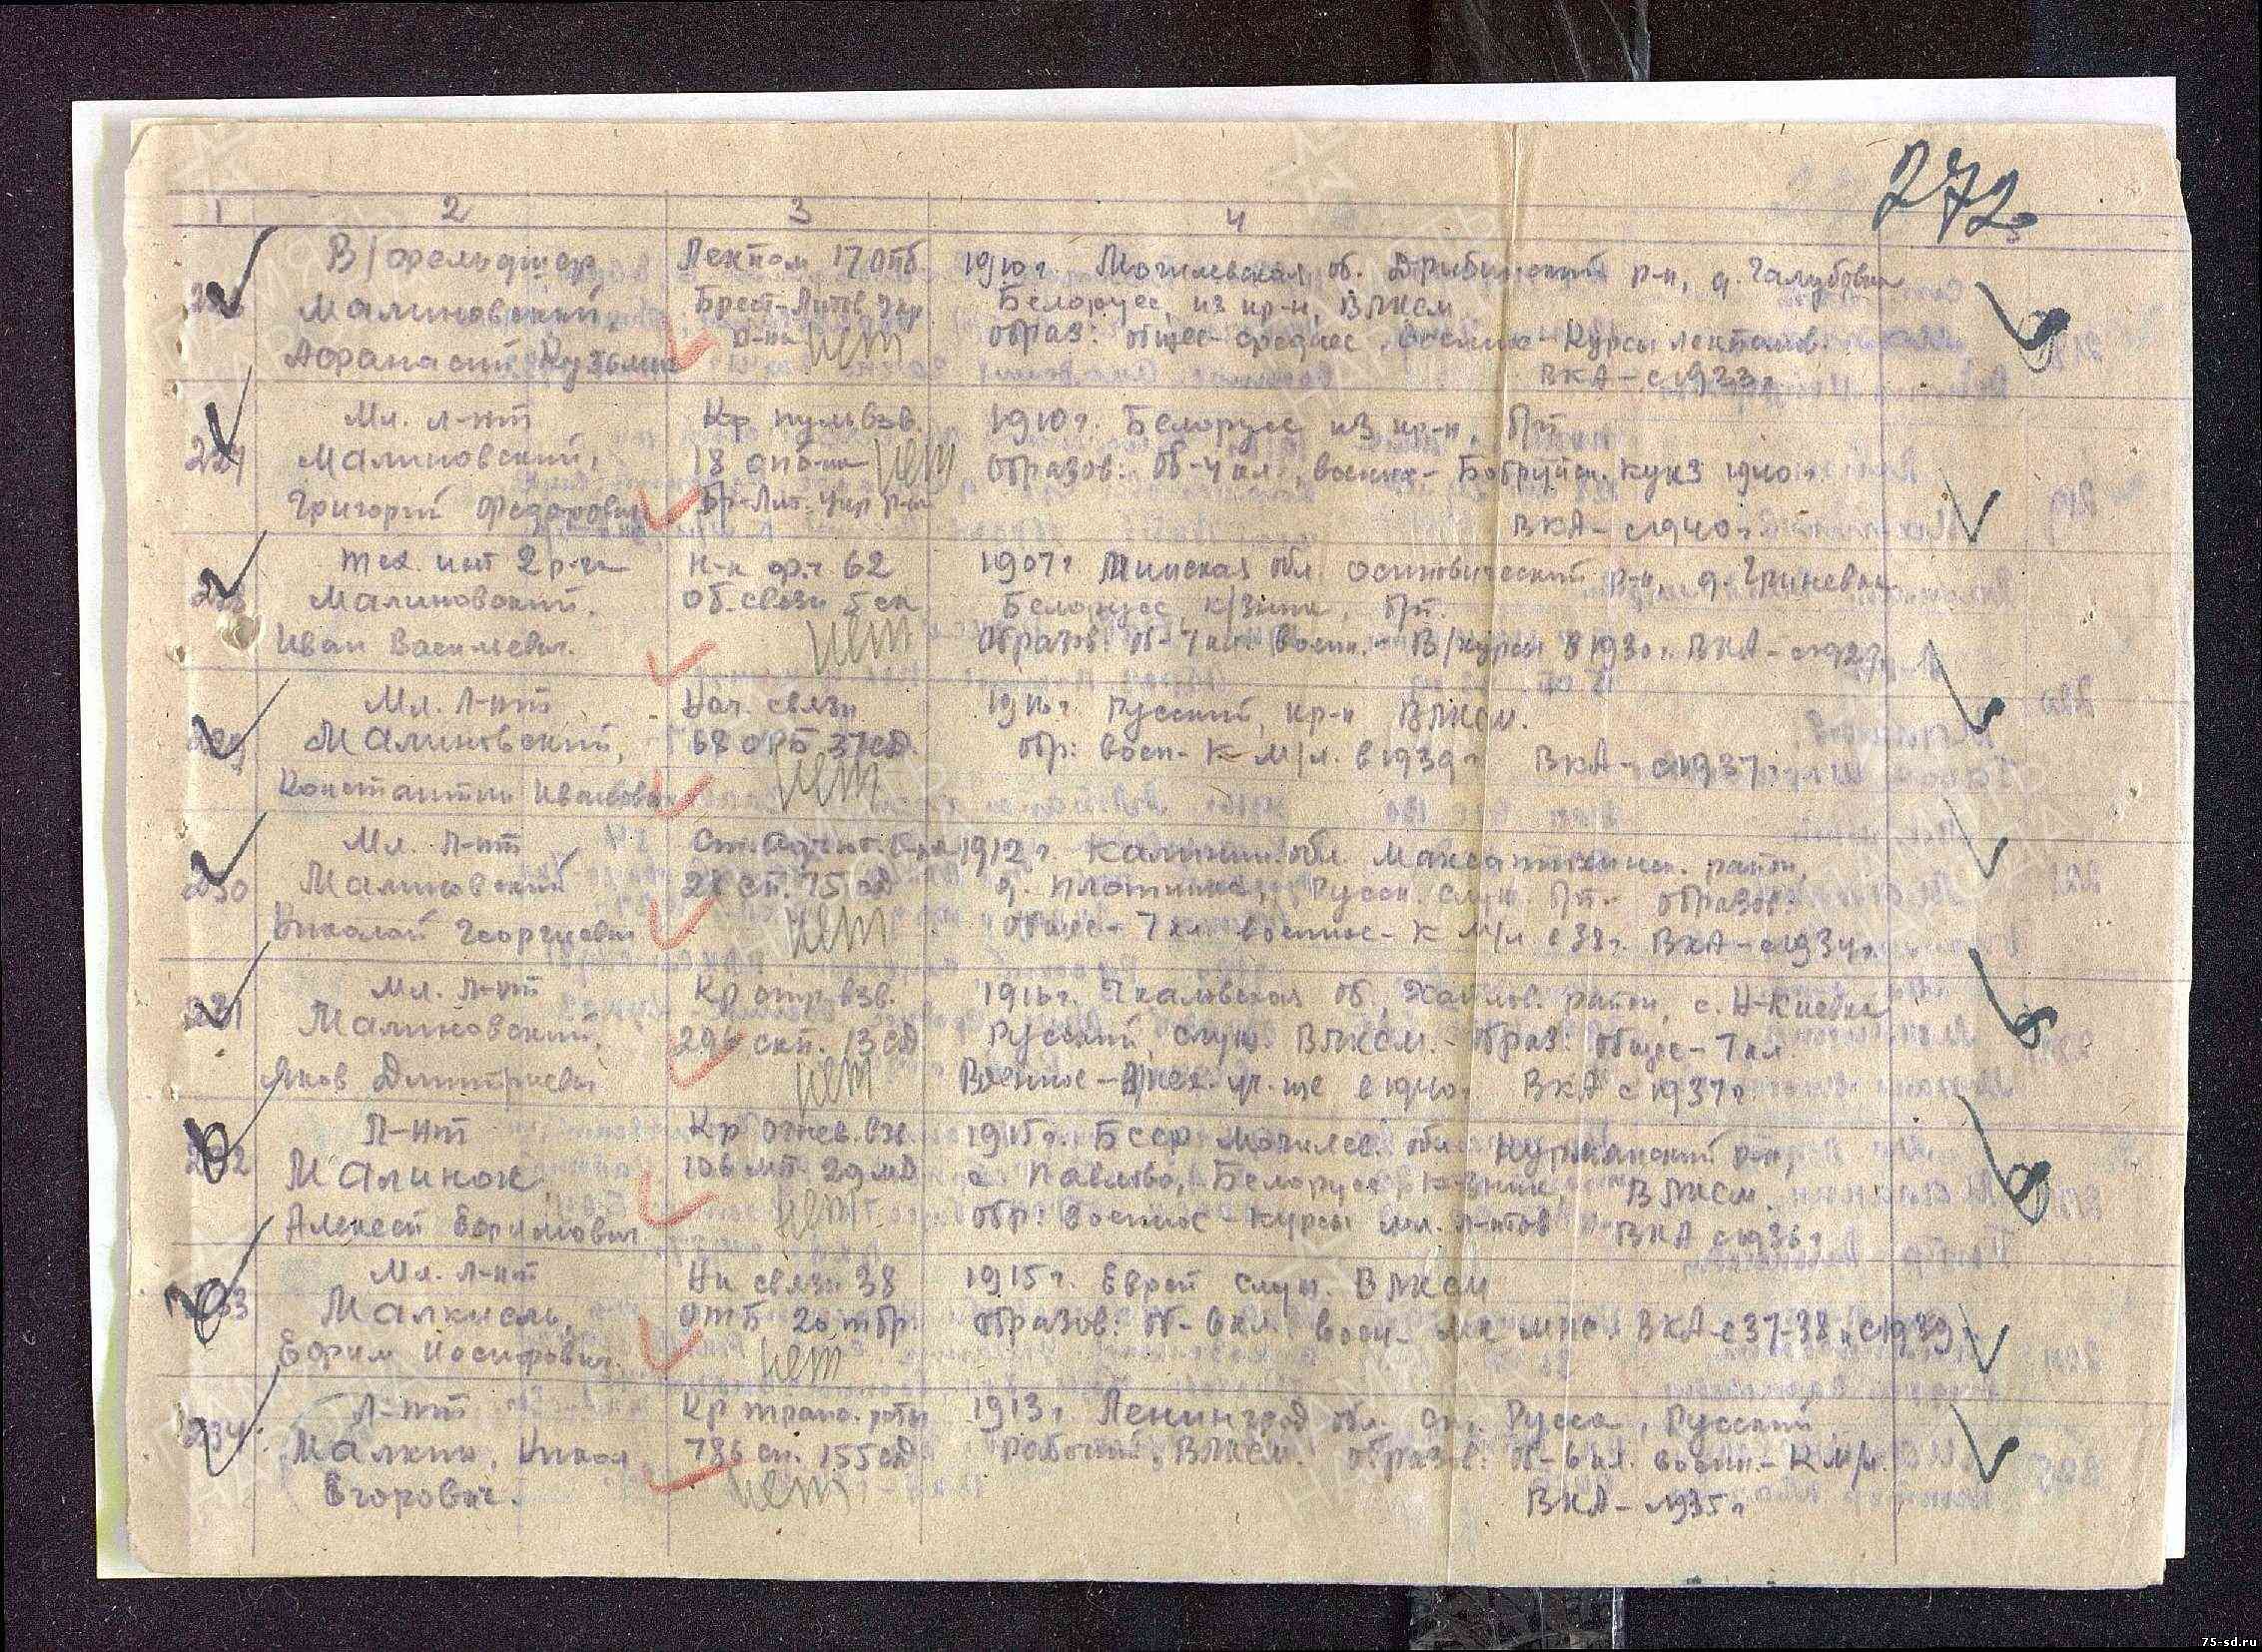 272
1 2 3 4
226 В/фельдшер Лекпом 17 ОПБ 1910 г. Могилевская об. Дрибинский р-н, д.
Малиновский, Брест-Литов. Укр Белорусс, из кр-н, ВЛКСМ
Афанасий Кузьмич р-на нет образ: общее-среднее, военное-Курсы лекпомов.
ВКА-с 1933 г.
227 Мл. л-нт Кр пульвзв. 1910 г. Белорусс из кр-н, б/п
Малиновский, 18 опб-на нет образов: об-4 кл., военное- Бобруйск. КУКЗ 1940 г.
Григорий Федорович Бр-Лит. Укр р-на
ВКА-с 1940 г.
228 Тех. инт 2 р-га Н-к ф.ч 62 1907 г. Минская обл. Осиповический р-н, д.
Малиновский, об. связи 5 ск Белорусс, к/з-ник, б/п.
Иван Васильевич. нет образов: об-7 кл. военн.- В/курсы в 1930 г. ВКА-с 1929 г.
229 Мл. л-нт Нач. связи Русский, кр-н ВЛКСМ.
Малиновский, 68 ОРБ 37 сд. обр: воен-К М/Л. в 1939 г ВКА-с 1937 г.
Константин Иванович нет
230 Мл. л-нт 1912 г. Калинин. обл. Максатихинск. район,
Малиновский 28 сп. 75 сд д. Плотинка, Русск. служ. б/п.- образов:
Николай Георгиевич нет общее-7 кл военное-К М/Л в 38 г. ВКА-с 1934 г.
231 Мл. л-нт Кр отр. взв. 1916 г. Чкаловская об., район, с. Н-Киевка
Малиновский, 296 скп. 13 сд Русский, служ. ВЛКСМ.-образ: общее-7 кл.
Яков Дмитриевич нет Военное- уч-ще в 1940 г ВКА с 1937 г
232 Л-нт Кр огнев. вз. 1915 г. БССР Могилев. обл.
Малинок, 106 мп 29 мд с. Павлово, Белорусс, к-зник, ВЛКСМ.
Алексей Ефимович нет обр: военное-курсы мл. л-нтов ВКА с 1936 г
233 Мл. л-нт Нк связи 38 1915 г. Еврей служ. ВЛКСМ
Малкиель, ОТБ 20 тбр. образов: об-6 кл. воен- ВКА-с 37-38 и с 1939 г
Ефрим Иосифович. нет
234 Л-нт Кр трансп. роты 1913 г Ленинград обл. Ст. Русса, Русский
Малкин, Никол. 786 сп. 155 сд рабочий, ВЛКСМ. образов: об-6 кл. военн.-К М/Л.
Егорович. нет ВКА-с 1935 г
75-sd.ru